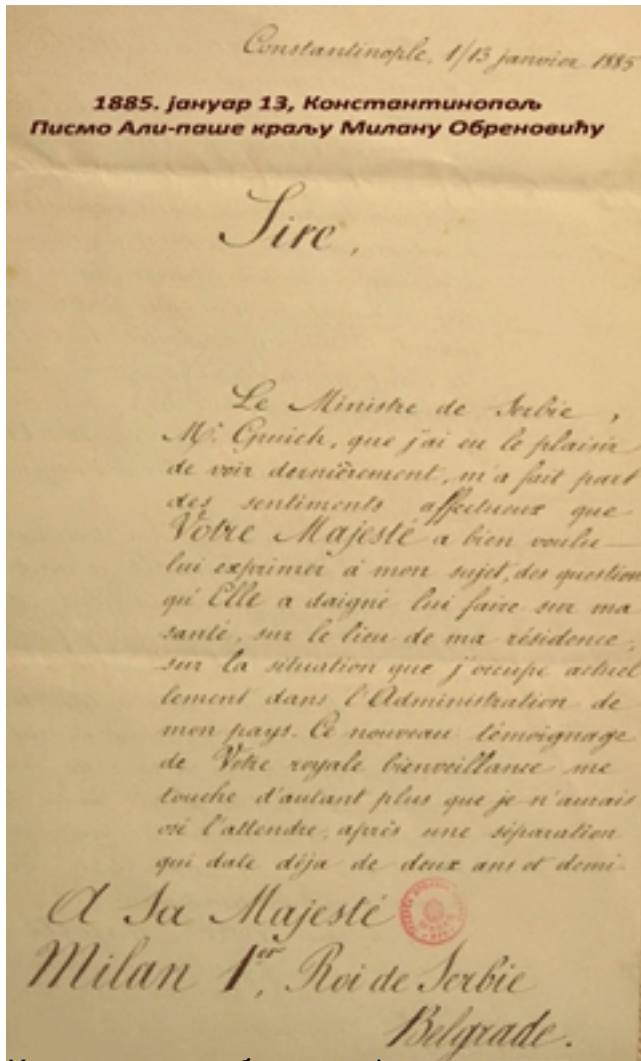 Constantinople, 1/13 janvier 1885
1885. јануар 13, Константинопољ
Писмо Али-паше краљу Милану Обреновићу
Sire,
Le Ministre de Serbie,
Mr. Gruich, que j'ai eu le plaisir
de voir dernièrement, m'a fait part
des sentiments affectueux que
Votre Majesté a bien voulu
lui exprimer à mon sujet, des question
qu'Elle a daigné lui faire sur ma
santé, sur le lieu de ma résidence,
sur la situation que j'occupe actuel
lement dans l'Administration de
mon pays. Ce nouveau témoignage
de Votre royale bienveillance me
touche d'autant plus que je n'aurais
osé l'attendre, après une séparation
qui date déja de deux ans et demi.
A Sa Majesté
Milan 1er, Roi de Serbie
Belgrade.